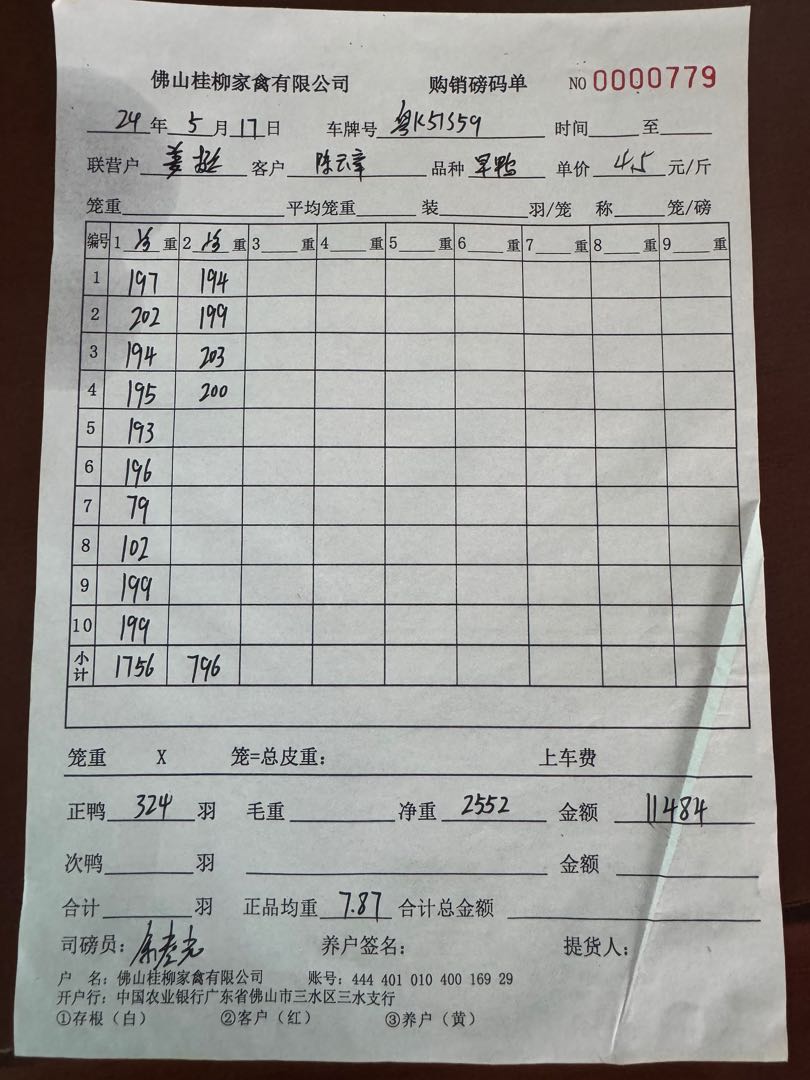 佛山桂柳家禽有限公司 购销磅码单 NO 0000779
24年5月17日 车牌号 粤K51S59 时间____至____
联营户 客户 陈云章 品种 旱鸭 单价 4.5 元/斤
笼重____平均笼重____装____羽/笼 称____笼/磅
编号 1 净 重 2 净 重 3____重 4____重 5____重 6____重 7____重 8____重 9____重
1 197 194
2 202 199
3 194 203
4 195 200
5 193
6 196
7 79
8 102
9 199
10 199
小计 1756 796
笼重 X 笼=总皮重: 上车费
正鸭 324 羽 毛重____ 净重 2552 金额 11484
次鸭____羽 ____ 金额____
合计____羽 正品均重 7.87 合计总金额____
司磅员: 养户签名: 提货人:
户 名: 佛山桂柳家禽有限公司 账号: 444 401 010 400 169 29
开户行: 中国农业银行广东省佛山市三水区三水支行
①存根(白) ②客户(红) ③养户(黄)